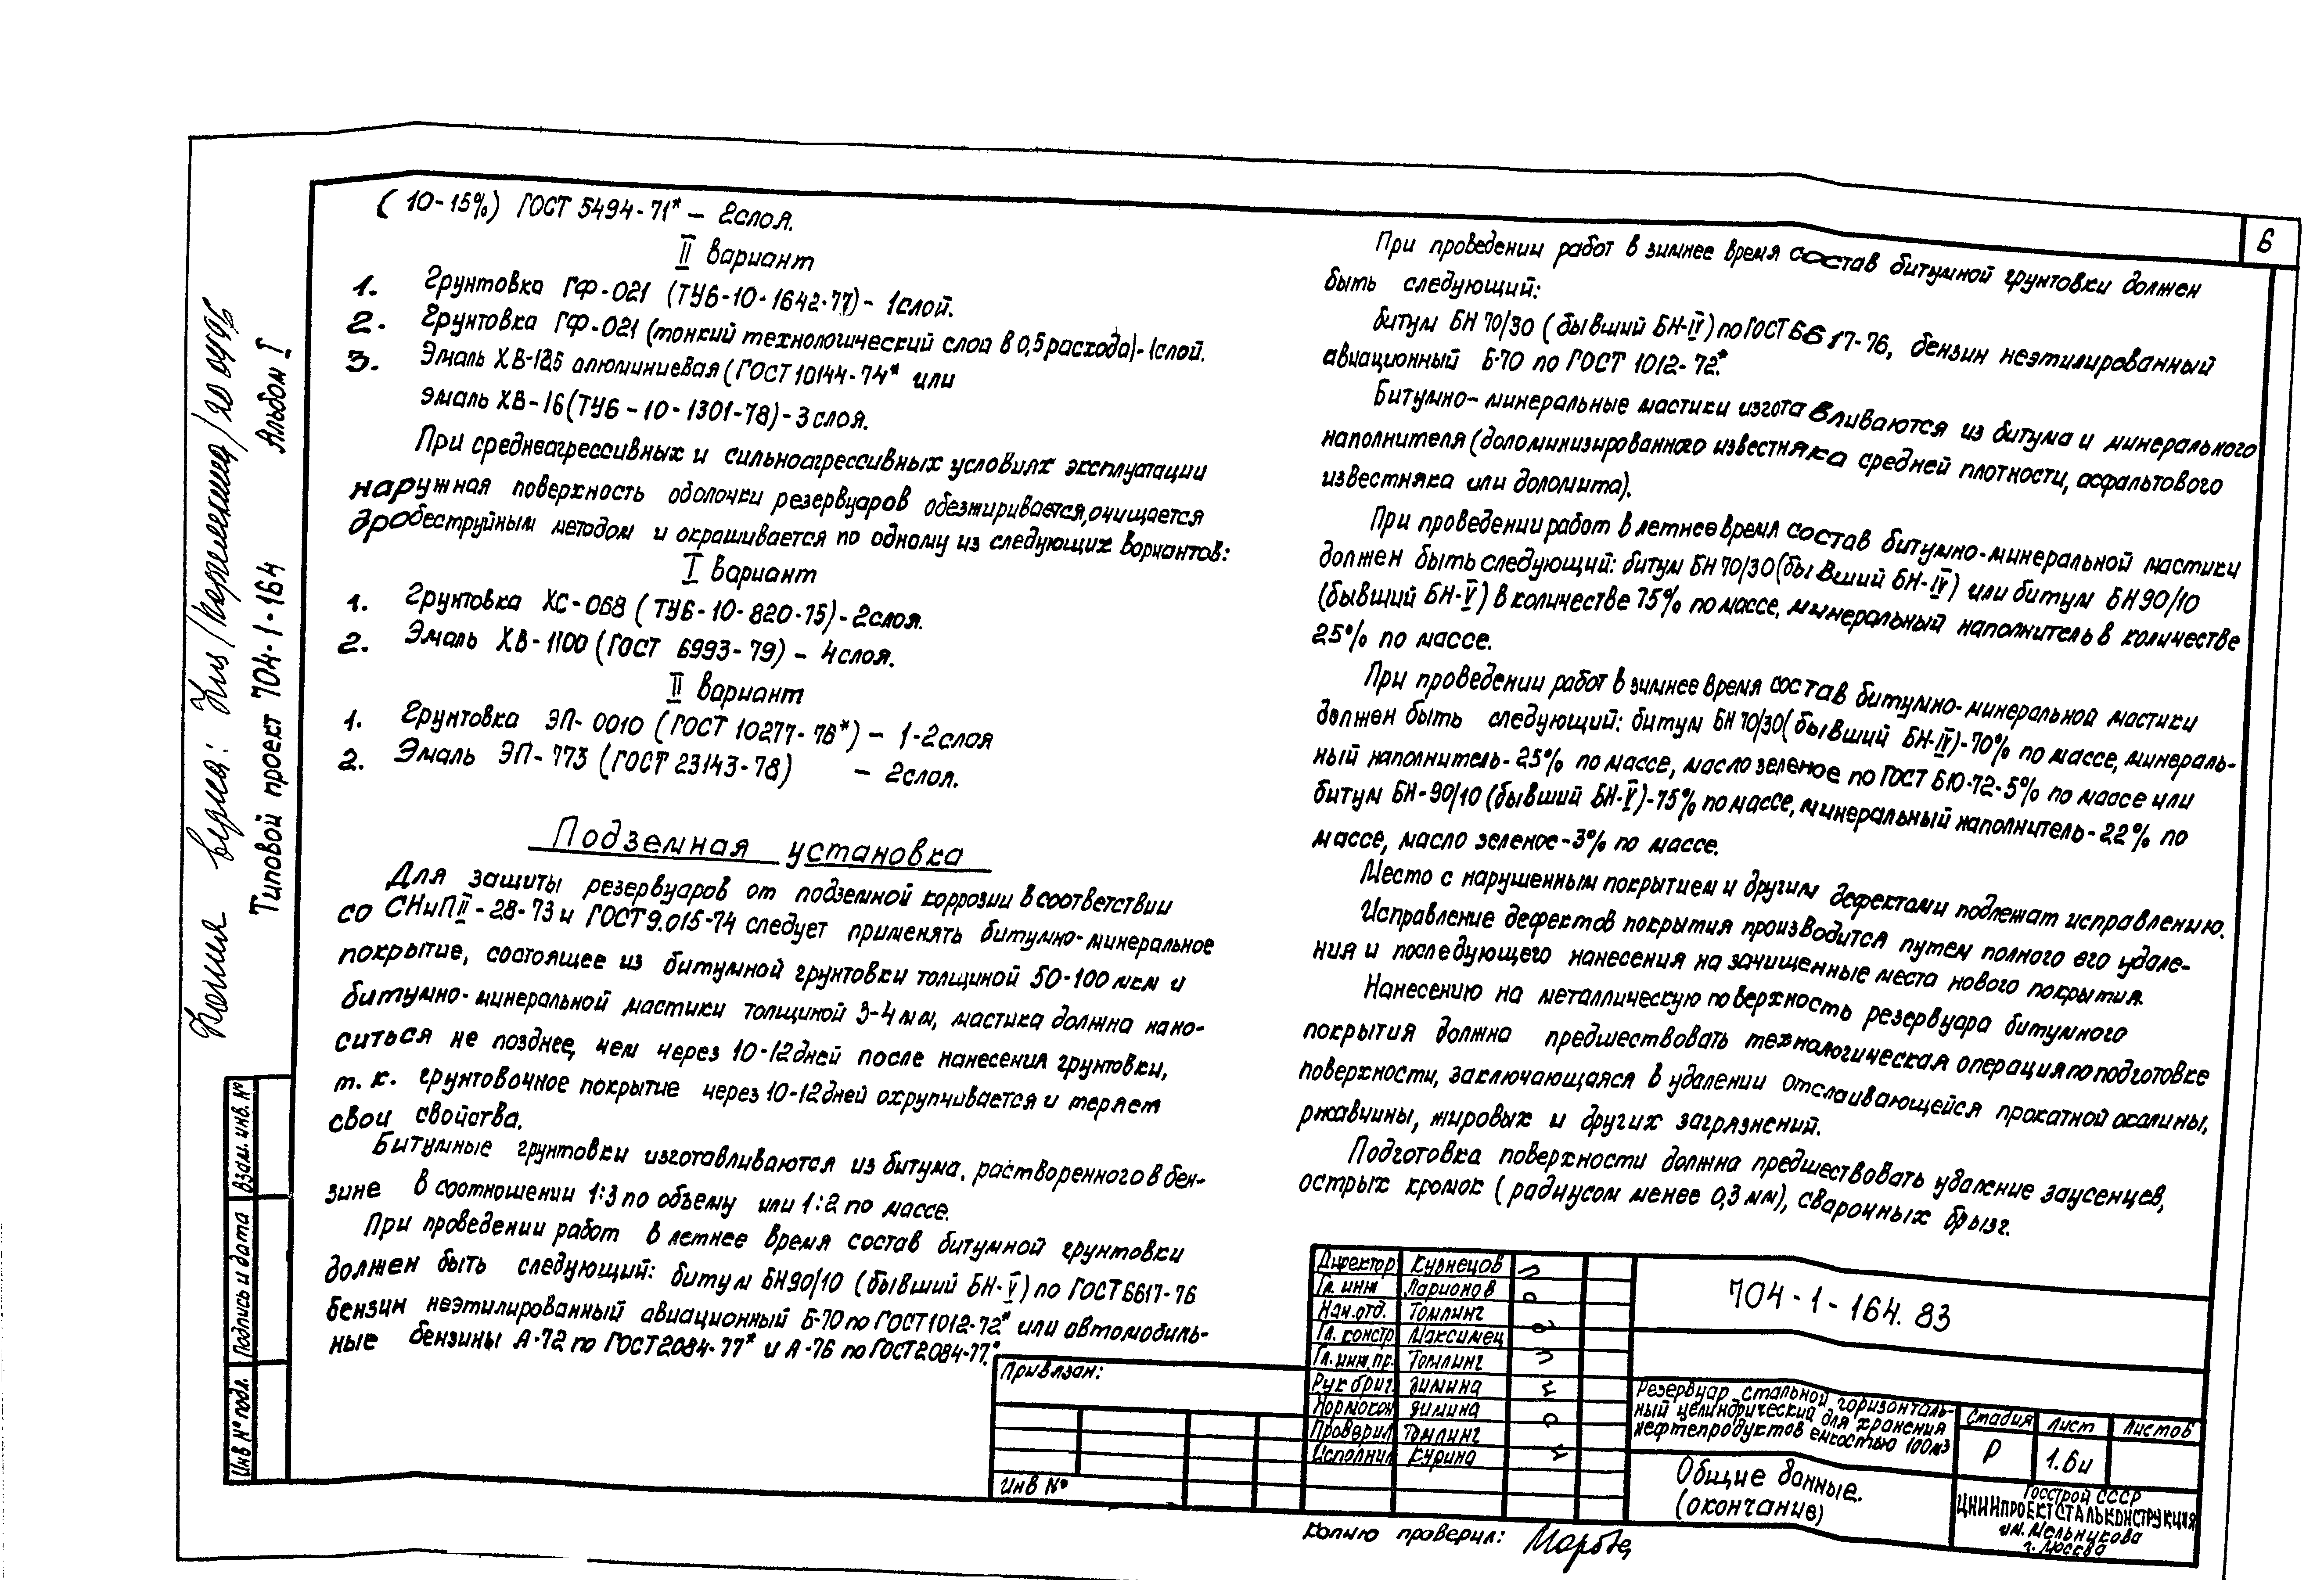 ( 10-15%) ГОСТ 5494-71* – 2слоя.
II вариант
1. Грунтовка ГФ-021 (ТУ6-10-1642-77) – 1слой.
2. Грунтовка ГФ-021 (тонкий технологический слой в 0,5 расхода) - 1слой.
3. Эмаль ХВ-125 алюминиевая (ГОСТ 10144-74* или
эмаль ХВ-16 (ТУ6-10-1301-78) - 3 слоя.
При среднеагрессивных и сильноагрессивных условиях эксплуатации
наружная поверхность оболочки резервуаров обезжиривается, очищается
дробеструйным методом и окрашивается по одному из следующих вариантов:
I вариант
1. Грунтовка ХС-068 (ТУ6-10-820-75) - 2слоя.
2. Эмаль ХВ-1100 (ГОСТ 6993-79) – 4слоя.
II вариант
1. Грунтовка ЭП-0010 (ГОСТ 10277-76*) – 1-2слоя
2. Эмаль ЭП-773 (ГОСТ 23143-78) – 2слоя.
Подземная установка
Для защиты резервуаров от подземной коррозии в соответствии
со СНиП II-28-73 и ГОСТ 9.015-74 следует применять битумно-минеральное
покрытие, состоящее из битумной грунтовки толщиной 50-100 мкм и
битумно-минеральной мастики толщиной 3-4 мм, мастика должна нано-
ситься не позднее, чем через 10-12дней после нанесения грунтовки,
т. к. грунтовочное покрытие через 10-12дней охрупчивается и теряет
свои свойства.
Битумные грунтовки изготавливаются из битума, растворенного в бен-
зине в соотношении 1:3 по объему или 1:2 по массе.
При проведении работ в летнее время состав битумной грунтовки
должен быть следующий: битум БН90/10 (бывший БН-V) по ГОСТ 6617-76
бензин неэтилированный авиационный Б-70 по ГОСТ 1012-72* или автомобиль-
ные бензины А-72 по ГОСТ 2084-77* и А-76 по ГОСТ 2084-77.*
6
При проведении работ в зимнее время состав битумной грунтовки должен
быть следующий:
битум БН 70/30 (бывший БН-IV) по ГОСТ 6617-76, бензин неэтилированный
авиационный Б-70 по ГОСТ 1012-72.*
Битумно-минеральные мастики изготавливаются из битума и минерального
наполнителя (доломинизированного известняка средней плотности, асфальтового
известняка или доломита).
При проведении работ в летнее время состав битумно-минеральной мастики
должен быть следующий: битум БН 70/30 (бывший БН-IV) или битум БН 90/10
(бывший БН-V) в количестве 75% по массе, минеральный наполнитель в количестве
25% по массе.
При проведении работ в зимнее время состав битумно-минеральной мастики
должен быть следующий: битум БН 70/30 (бывший БН-IV)-70% по массе, минераль-
ный наполнитель-25% по массе, масло зеленое по ГОСТ 610-72-5% по массе или
битум БН-90/10 (бывший БН-V)-75% по массе, минеральный наполнитель-22% по
массе, масло зеленое-3% по массе.
Место с нарушенным покрытием и другим дефектами подлежат исправлению.
Исправление дефектов покрытия производится путем полного его удале-
ния и последующего нанесения на зачищенные места нового покрытия.
Нанесению на металлическую поверхность резервуара битумного
покрытия должна предшествовать технологическая операция по подготовке
поверхности, заключающаяся в удалении отслаивающейся прокатной окалины,
ржавчины, жировых и других загрязнений.
Подготовка поверхности должна предшествовать удаление заусенцев,
острых кромок (радиусом менее 0,3 мм), сварочных брызг.
Копия верна:
Типовой проект 704-1-164 Альбом I
Взам. инв. №
Подпись и дата
Инв № подл.
Привязан:
Инв №
Директор Кузнецов
Гл. инж Ларионов
Нач. отд. Томлинг
Гл. констр Максимец
Гл. инж. пр. Томлинг
Рук бриг. Зимина
Нормокон Зимина
Проверил Томлинг
Исполнил Курина
704-1-164.83
Резервуар стальной горизонталь-
ный цилиндрический для хранения
нефтепродуктов емкостью 100м³
Стадия Лист Листов
Р 1.6и
Общие данные.
(окончание)
Госстрой СССР
ЦНИИПРОЕКТСТАЛЬКОНСТРУКЦИЯ
им. Мельникова
г. Москва
Копию проверил: